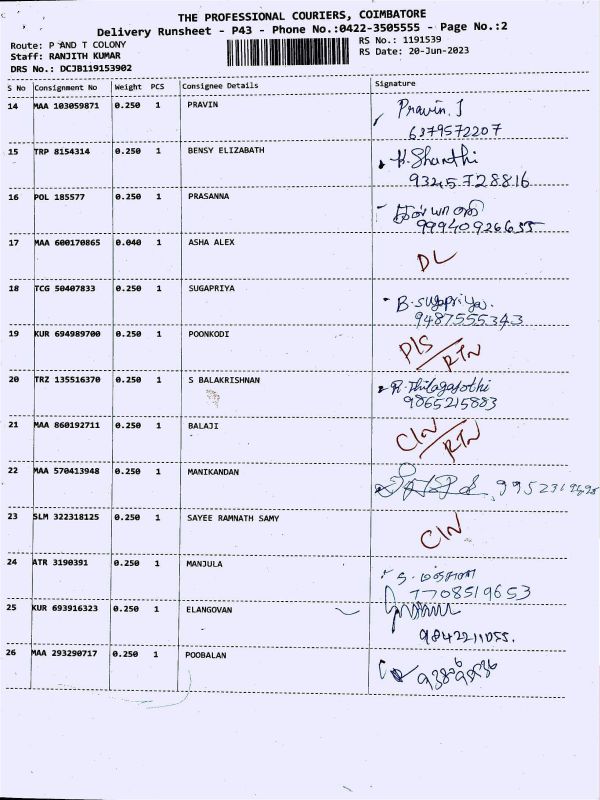 THE PROFESSIONAL COURIERS, COIMBATORE
Delivery Runsheet - P43 - Phone No.:0422-3505555 - Page No.:2
Route: P AND T COLONY
RS No.: 1191539
Staff: RANJITH KUMAR
RS Date: 20-Jun-2023
DRS No.: DCJB119153902
S No Consignment No Weight PCS Consignee Details Signature
14 MAA 103059871 0.250 1 PRAVIN Pravin. J
6379572207
15 TRP 8154314 0.250 1 BENSY ELIZABATH K. Shanthi
9345728816
16 POL 185577 0.250 1 PRASANNA
99940926655
17 MAA 600170865 0.040 1 ASHA ALEX DL
18 TCG 50407833 0.250 1 SUGAPRIYA B. Sugapriya.
9487555343
19 KUR 694989700 0.250 1 POONKODI P/S
RTN
20 TRZ 135516370 0.250 1 S BALAKRISHNAN R. Thilagajothi
9865215883
21 MAA 860192711 0.250 1 BALAJI C/N
RTN
22 MAA 570413948 0.250 1 MANIKANDAN
23 SLM 322318125 0.250 1 SAYEE RAMNATH SAMY C/N
24 ATR 3190391 0.250 1 MANJULA
7708519653
25 KUR 693916323 0.250 1 ELANGOVAN
9842211055.
26 MAA 293290717 0.250 1 POOBALAN